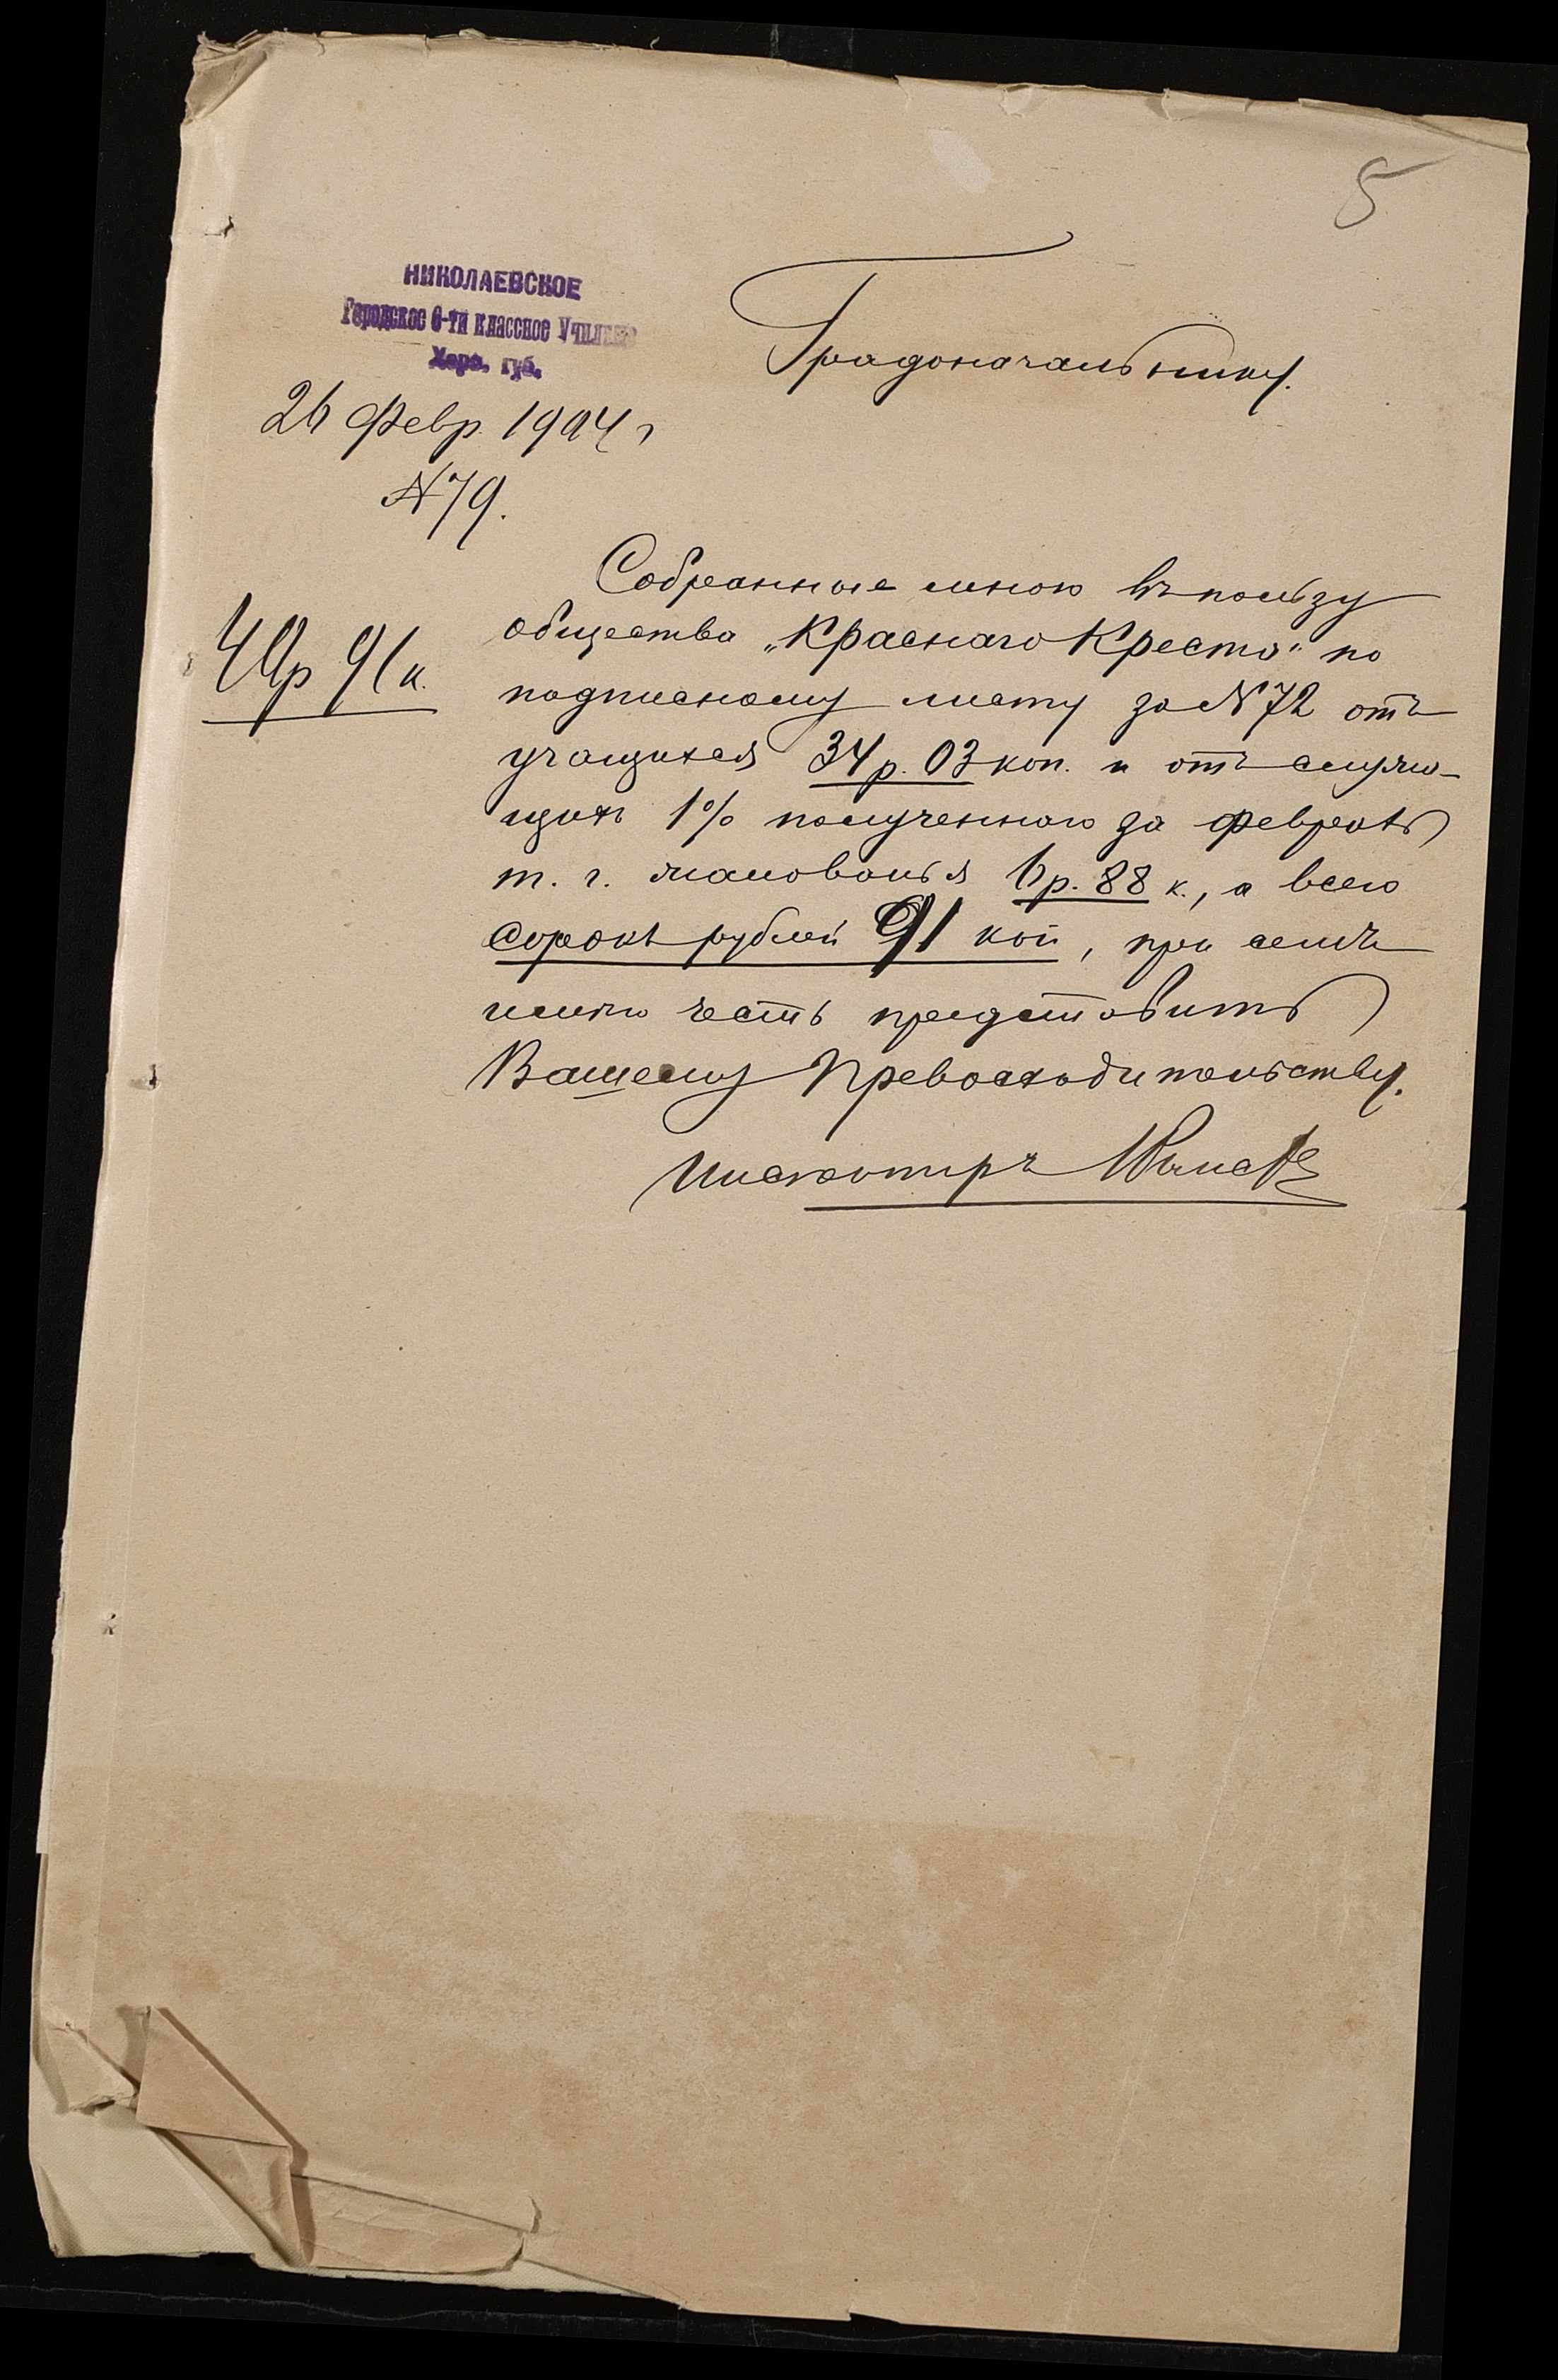 5
НИКОЛАЕВСКОЕ
Городское 6-ти классное Училище
Херс. губ.
Градоначальнику.
26 Февр. 1904 г
№ 79.
Собранные мною въ пользу
40р 91к.
общества „Краснаго Креста" по
подписному листу за № 72 отъ
учащихся 34 р. 03 коп. и отъ служа-
щихъ 1% полученнаго за февраль
т. г. жалованья 6 р. 88 к., а всего
сорокъ рублей 91 коп, при семъ
имѣю честь представить
Вашему Превосходительству.
Инспекторъ